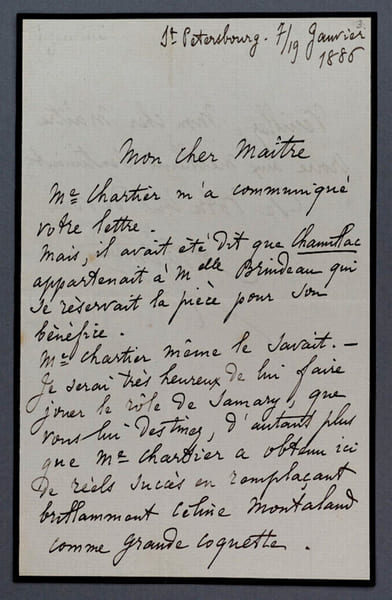 3.
St Petersbourg. 7/19 Janvier
1886
Mon cher Maître
Me Chartier m'a communiqué
votre lettre.
Mais, il avait été dit que Chamillac
appartenait à Melle Brindeau qui
se réservait la pièce pour son
bénéfice.
Mr Chartier même le savait. —
Je serai très heureux de lui faire
jouer le rôle de Samary, que
vous lui destinez, d'autant plus
que Me Chartier a obtenu ici
de réels succès en remplaçant
brillamment Céline Montaland
comme grande coquette.